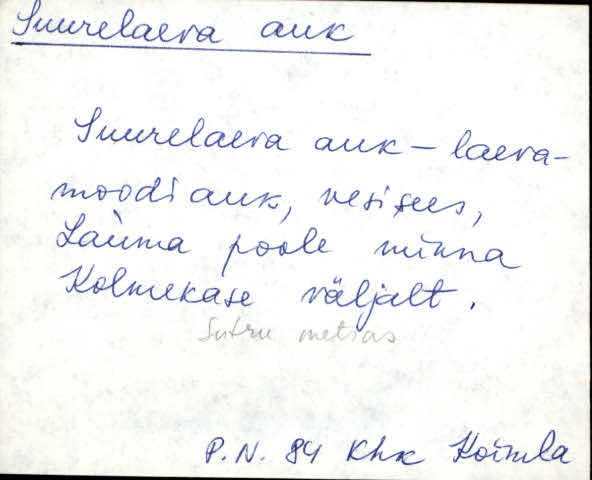 Suurelaeva auk
Suurelaeva auk – laeva-
moodi auk, vesi sees,
Laùma poole minna
Kolmekase väljalt.
Sutru metsas
P.N. 84 Khk Koimla